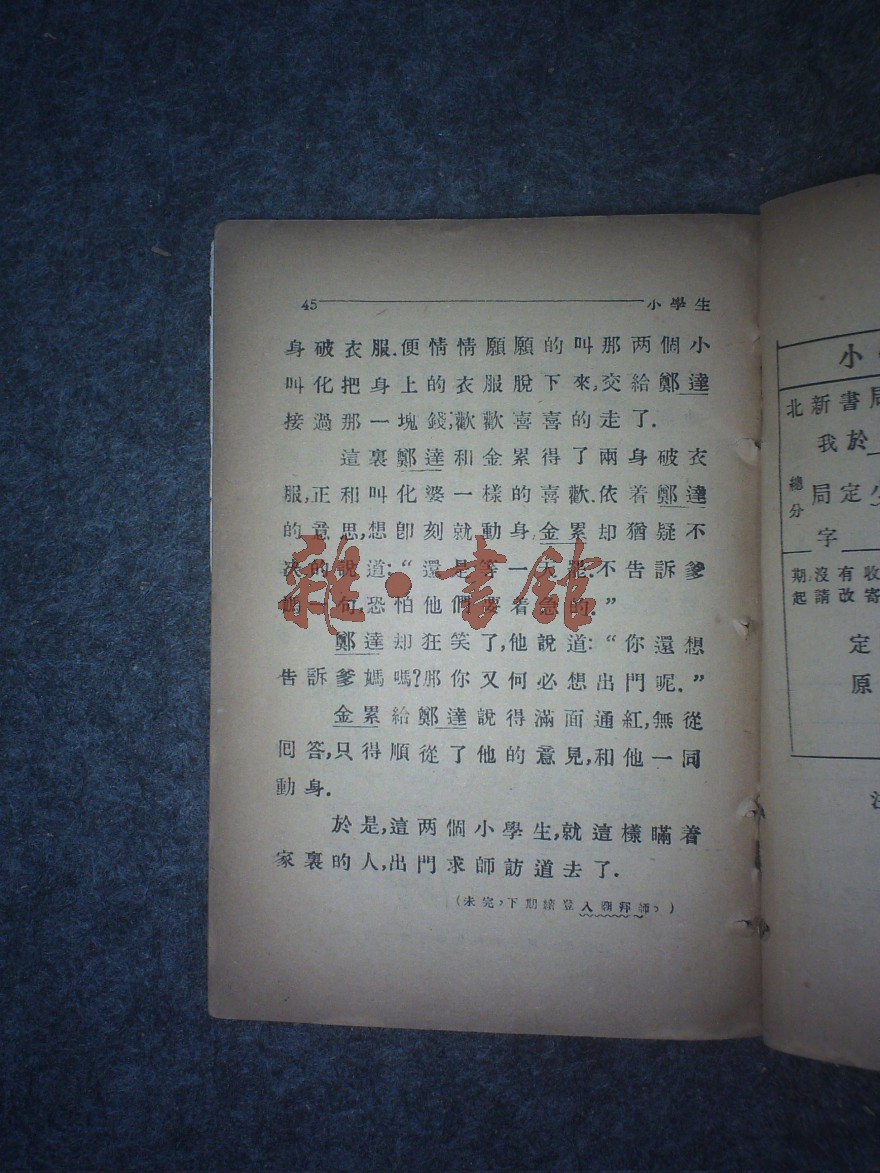 45 小學生
身破衣服.便情情願願的叫那两個小
叫化把身上的衣服脫下來,交給鄭達
接過那一塊錢,歡歡喜喜的走了.
這裏鄭達和金累得了兩身破衣
服,正和叫化婆一樣的喜歡.依着鄭達
的意思,想卽刻就動身,金累却猶疑不
决的說道:“還是等一天罷.不告訴爹
媽一句,恐怕他們要着急的.”
鄭達却狂笑了,他說道:“你還想
告訴爹媽嗎?那你又何必想出門呢.”
金累給鄭達說得滿面通紅,無從
囘答,只得順從了他的意見,和他一同
動身.
於是,這两個小學生,就這樣瞞着
家裏的人,出門求師訪道去了.
(未完,下期續登入廟拜師。)
雜·書館
小
北新書局
我於
總分局定
字
期沒有收
起請改寄
定
原
注